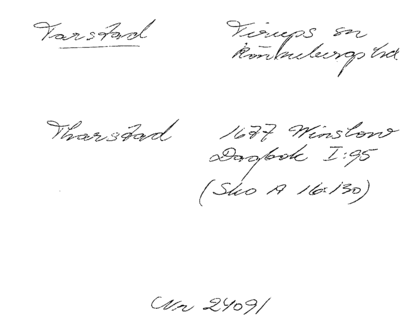 Tarstad Tirups sn
Rönnebergs hd
Tharstad 1677 Winslow
Dagbok I:95
(Sko A 16:130)
Nr 24091